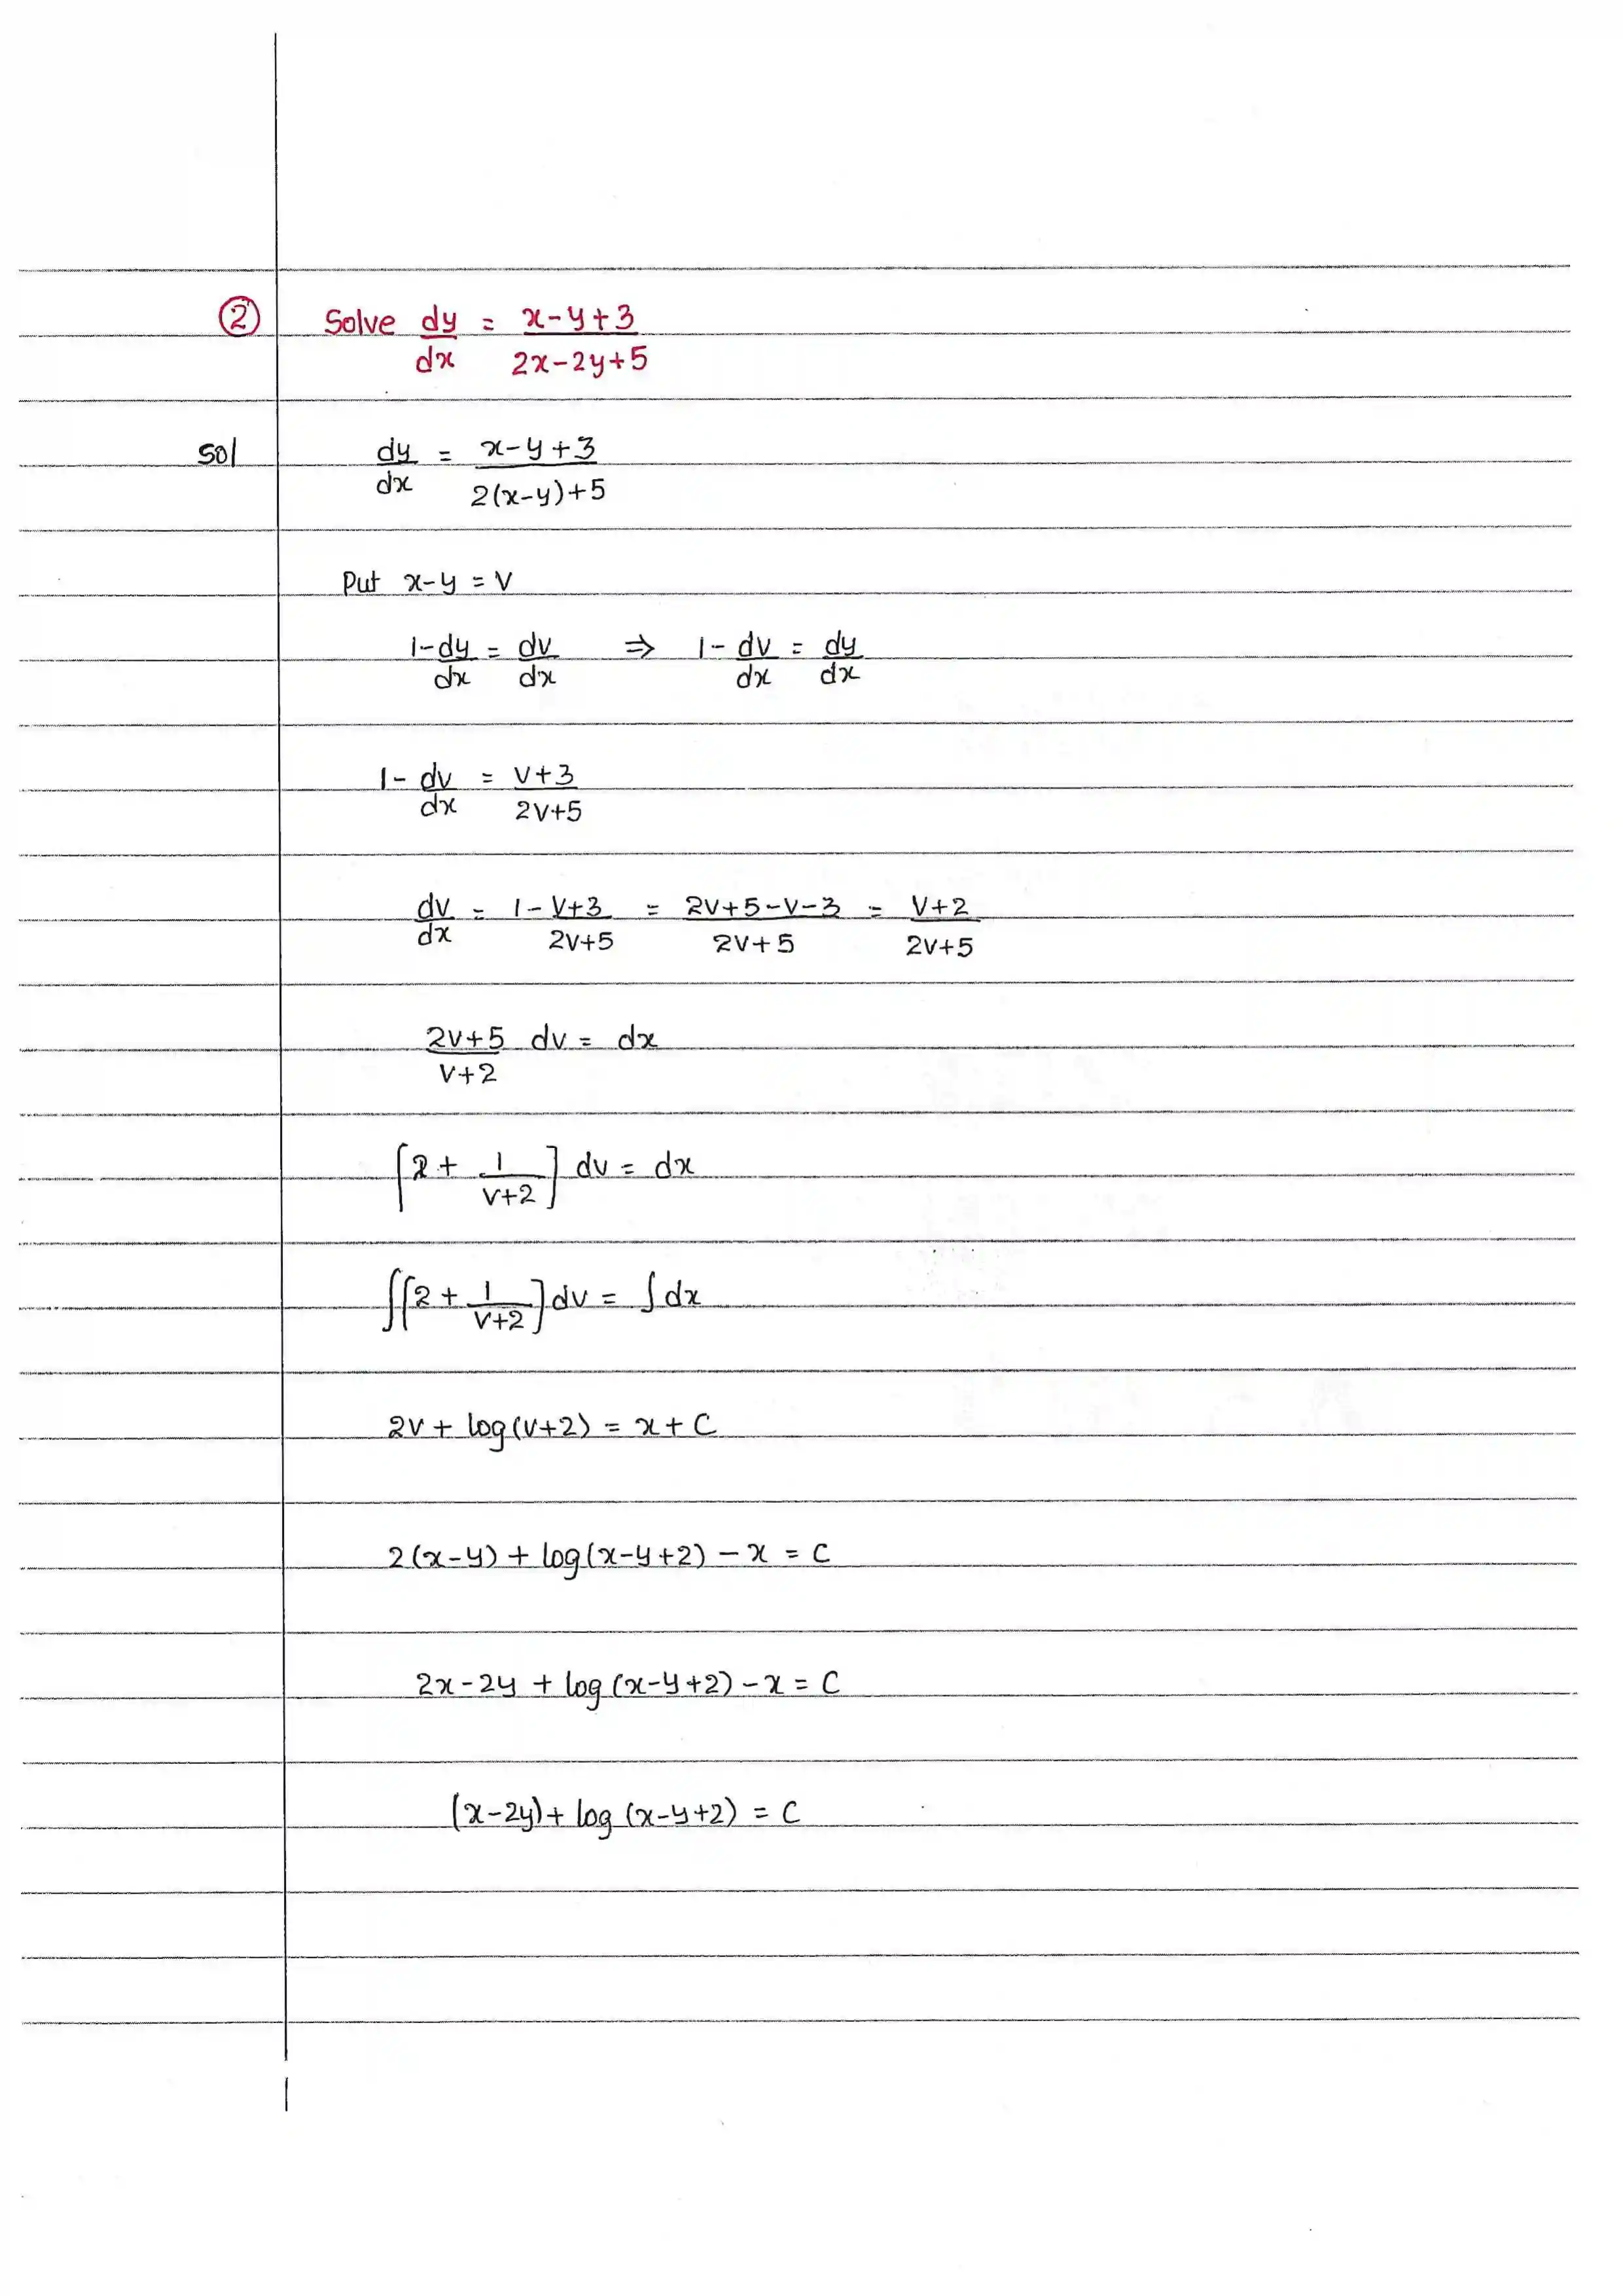 ② Solve dy/dx = x-y+3/2x-2y+5
Sol dy/dx = x-y+3/2(x-y)+5
Put x-y = v
1-dy/dx = dv/dx ⇒ 1- dv/dx = dy/dx
1- dv/dx = v+3/2v+5
dv/dx = 1- v+3/2v+5 = 2v+5-v-3/2v+5 = v+2/2v+5
2v+5/v+2 dv = dx
[2+ 1/v+2] dv = dx
∫[2+ 1/v+2] dv = ∫dx
2v + log(v+2) = x + C
2(x-y) + log(x-y+2) - x = C
2x-2y + log(x-y+2) - x = C
(x-2y)+ log (x-y+2) = C